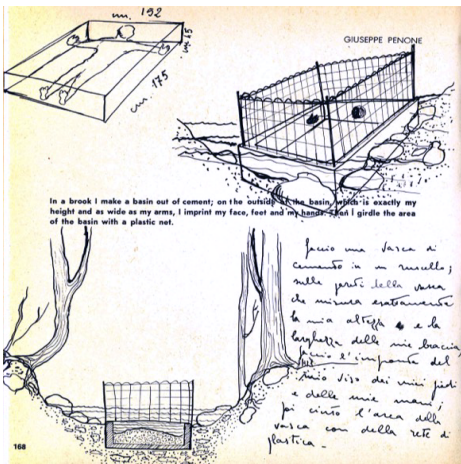 cm. 192
cm. 45
cm. 175
GIUSEPPE PENONE
In a brook I make a basin out of cement; on the outside of the basin, which is exactly my
height and as wide as my arms, I imprint my face, feet and my hands. Then I girdle the area
of the basin with a plastic net.
faccio una vasca di
cemento in un ruscello;
sulle pareti della vasca
che misura esattamente
la mia altezza e la
larghezza delle mie braccia,
faccio l'impronta del
mio viso dei miei piedi
e delle mie mani,
poi cinto l'area della
vasca con della rete di
plastica -
168